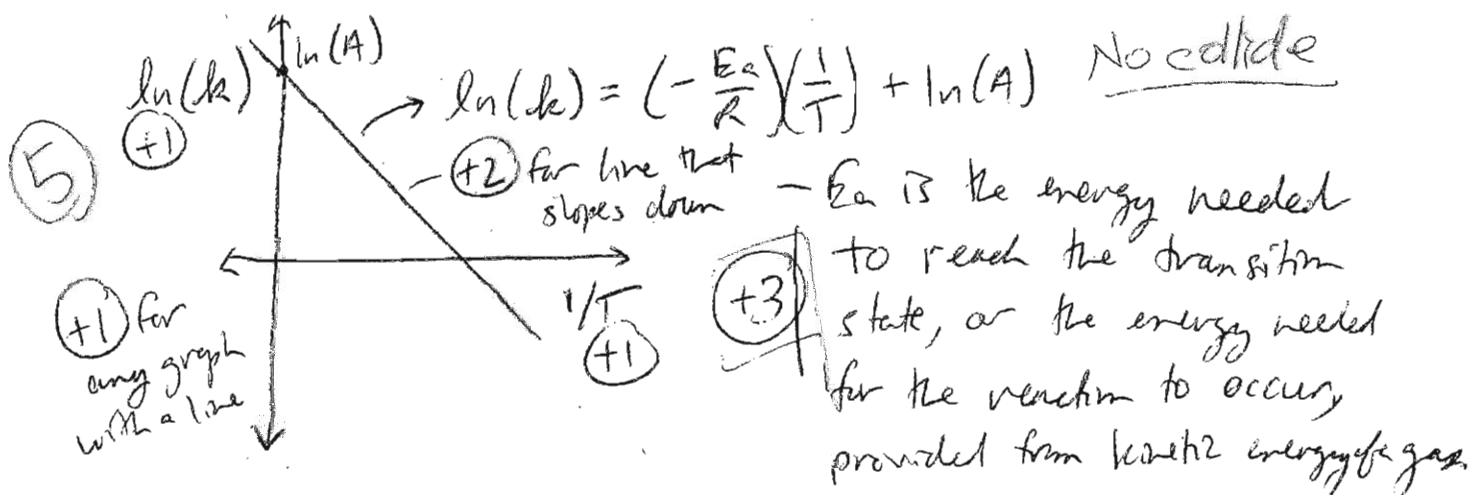 ln(k)
+1
ln(A)
ln(k) = (-Ea/R)(1/T) + ln(A)
5
+2 for line that
slopes down
1/T
+1
+1 for
any graph
with a line
+3
- Ea is the energy needed
to reach the transition
state, or the energy needed
for the reaction to occur,
provided from kinetic energy of a gas
No